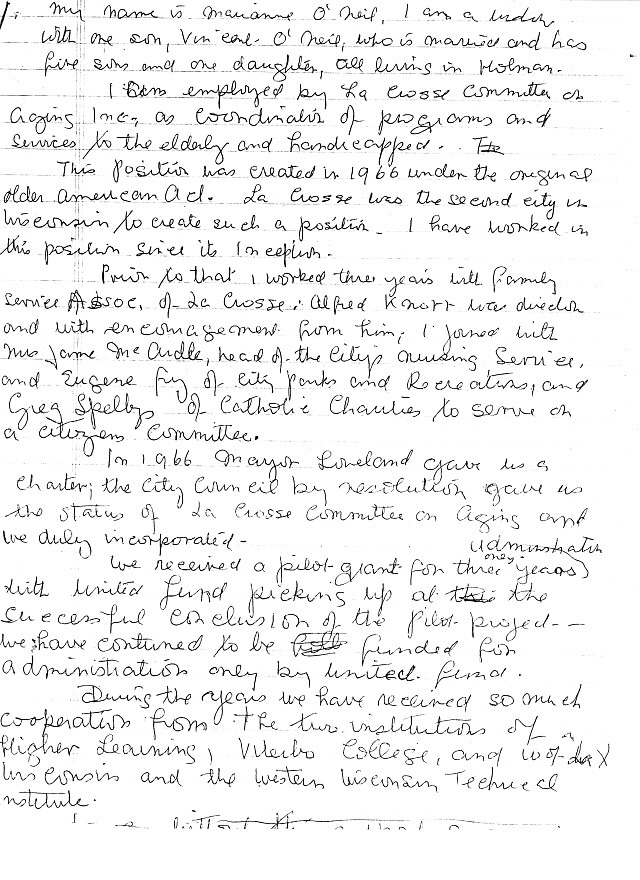 1. My name is Marianne O'Neil, I am a widow
with one son, Vincent O'Neil, who is married and has
five sons and one daughter, all living in Holman.
I am employed by La Crosse Committee on
Aging Inc., as Coordinator of programs and
services to the elderly and handicapped.. The
This position was created in 1966 under the original
older American Act. La Crosse was the second city in
Wisconsin to create such a position. I have worked in
this position since its Inception.
Prior to that I worked three years with Family
Service Assoc. of La Crosse. Alfred Knorr was director
and with encouagement from him, I joined with
Mrs Jame Mc Ardle, head of the City's nursing Service,
and Eugene Fry of City parks and Recreations, and
Greg Spelbys of Catholic Charities to serve on
a citizens Committee.
In 1966 Mayor Loveland gave us a
Charter; the City Council by resolution gave us
the status of La Crosse Committee on Aging and
we duly incorporated -
administration
only
we received a pilot grant for three years)
with United Fund picking up at this the
successful conclusion of the Pilot project -
we have contuned to be funded for
administration only by United Fund.
During the years we have received so much
cooperation from The two institutions of
Higher Learning, Viterbo College, and U of La X
Wisconsin and the Western Wisconsin Technical
nstitute.